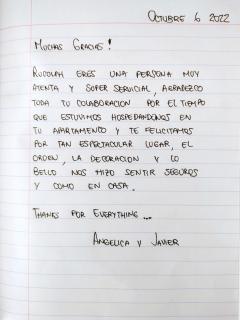 OCTUBRE 6 2022
MUCHAS GRACIAS!
RUDOLPH ERES UNA PERSONA MUY
ATENTA Y SUPER SERVICIAL, AGRADEZCO
TODA TU COLABORACION POR EL TIEMPO
QUE ESTUVIMOS HOSPEDANDONOS EN
TU APARTAMENTO Y TE FELICITAMOS
POR TAN ESPECTACULAR LUGAR, EL
ORDEN, LA DECORACION Y LO
BELLO NOS HIZO SENTIR SEGUROS
Y COMO EN CASA.
THANKS FOR EVERYTHING...
ANGELICA Y JAVIER